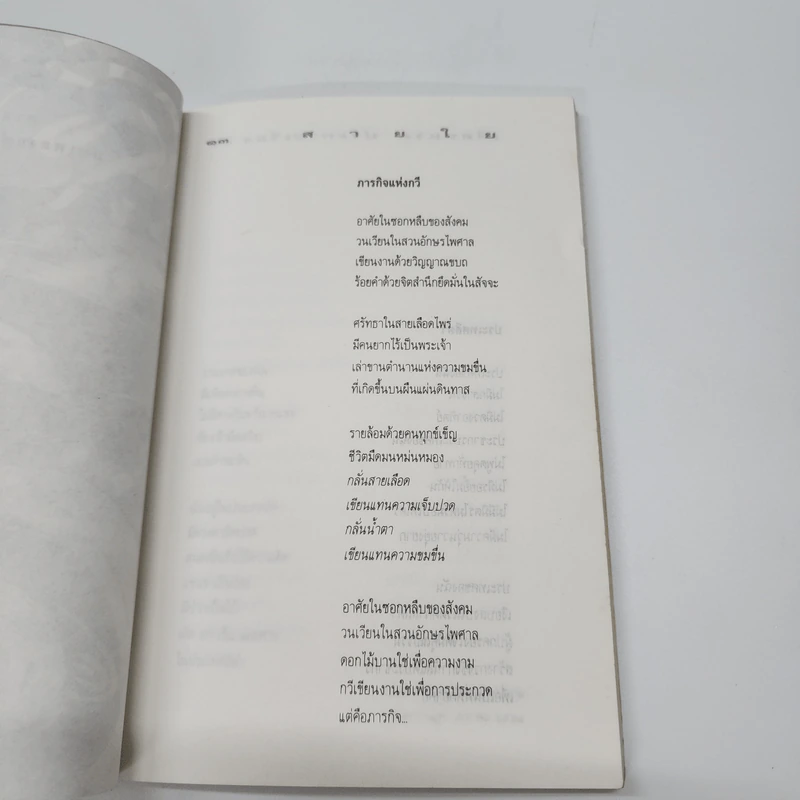 ๒๓ ส า ย ใ ย
ภารกิจแห่งกวี
อาศัยในซอกหลืบของสังคม
วนเวียนในสวนอักษรไพศาล
เขียนงานด้วยวิญญาณขบถ
ร้อยคำด้วยจิตสำนึกยึดมั่นในสัจจะ
ศรัทธาในสายเลือดไพร่
มีคนยากไร้เป็นพระเจ้า
เล่าขานตำนานแห่งความขมขื่น
ที่เกิดขึ้นบนผืนแผ่นดินทาส
รายล้อมด้วยคนทุกข์เข็ญ
ชีวิตมืดมนหม่นหมอง
กลั่นสายเลือด
เขียนแทนความเจ็บปวด
กลั่นน้ำตา
เขียนแทนความขมขื่น
อาศัยในซอกหลืบของสังคม
วนเวียนในสวนอักษรไพศาล
ดอกไม้บานใช่เพื่อความงาม
กวีเขียนงานใช่เพื่อการประกวด
แต่คือภารกิจ...